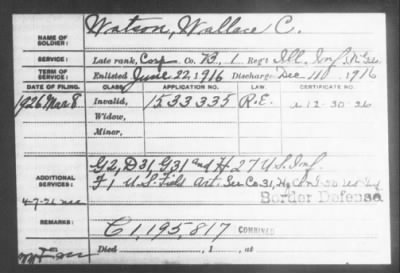 NAME OF SOLDIER: Watson, Wallace C.
SERVICE: Late rank, Corp Co. B, 1 Reg't Ill. Inf
TERM OF SERVICE: Enlisted June 22, 1916 Discharged Dec 11, 1916
DATE OF FILING. CLASS. APPLICATION NO. LAW. CERTIFICATE NO.
1926 Mar 8 Invalid, 1533335 R.E. 12-30-26
Widow,
Minor,
ADDITIONAL SERVICES: G2, D31 G31 and H 27 U.S. Inf
F 1 U.S. Field Art. Ser Co. 31, Hq Co.
4-7-26 Border Defense
REMARKS: C 1,195,817 COMBINED
Died , 1 , at